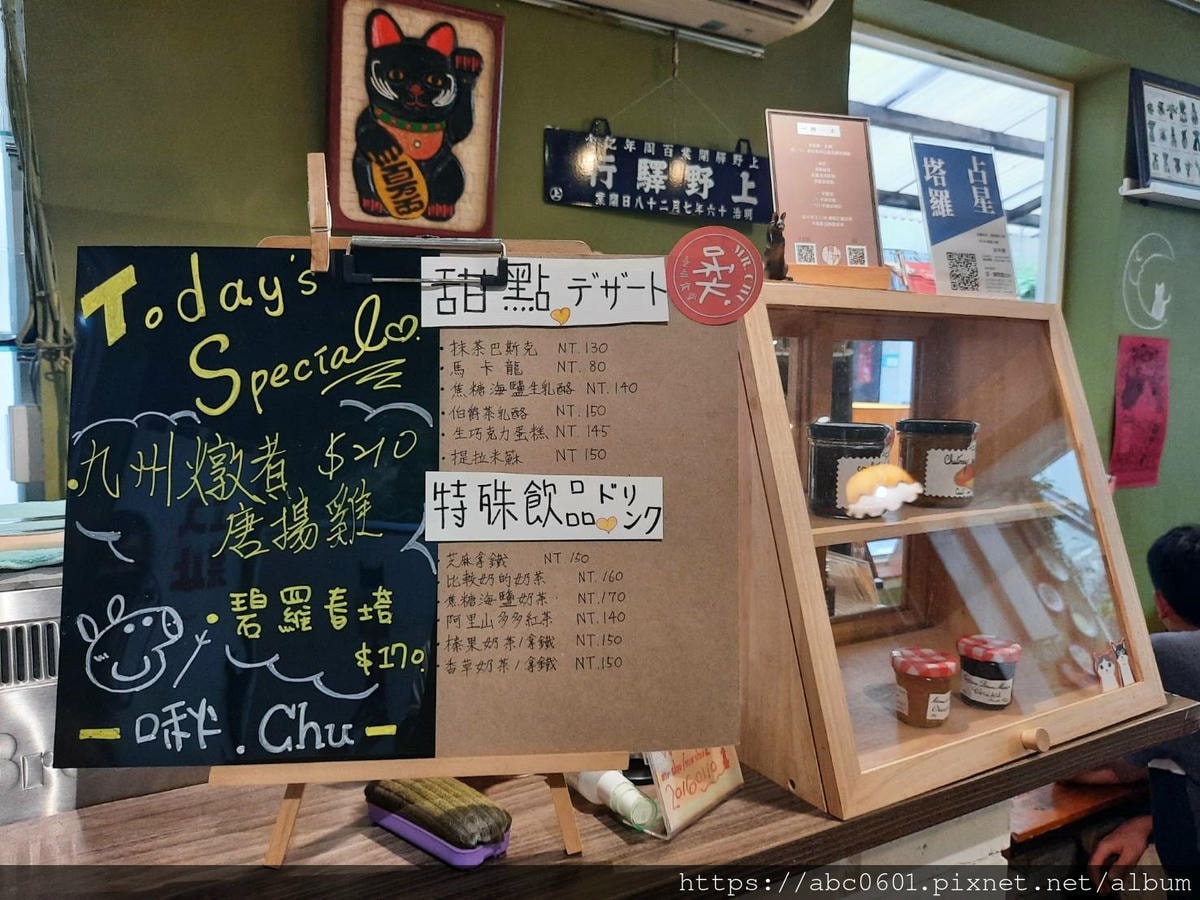 Today's
Special
九州燉煮 $210
唐揚雞
碧羅春垮
$170
啾.Chu
甜點 デザート
抹茶巴斯克 NT.130
馬卡龍 NT.80
焦糖海鹽生乳酪 NT.140
伯爵茶乳酪 NT.150
生巧克力蛋糕 NT.145
提拉米蘇 NT 150
特殊飲品 ドリンク
芝麻拿鐵 NT 150
比較奶的奶茶 NT.160
焦糖海鹽奶茶 NT.170
阿里山多多紅茶 NT.140
榛果奶茶/拿鐵 NT.150
香草奶茶/拿鐵 NT.150
MR. CHU
啾
念記年周百業開驛野上
行驛野上
業開日八十二月七年六十治明
占星
塔羅
20160110
https://abc0601.pixnet.net/album